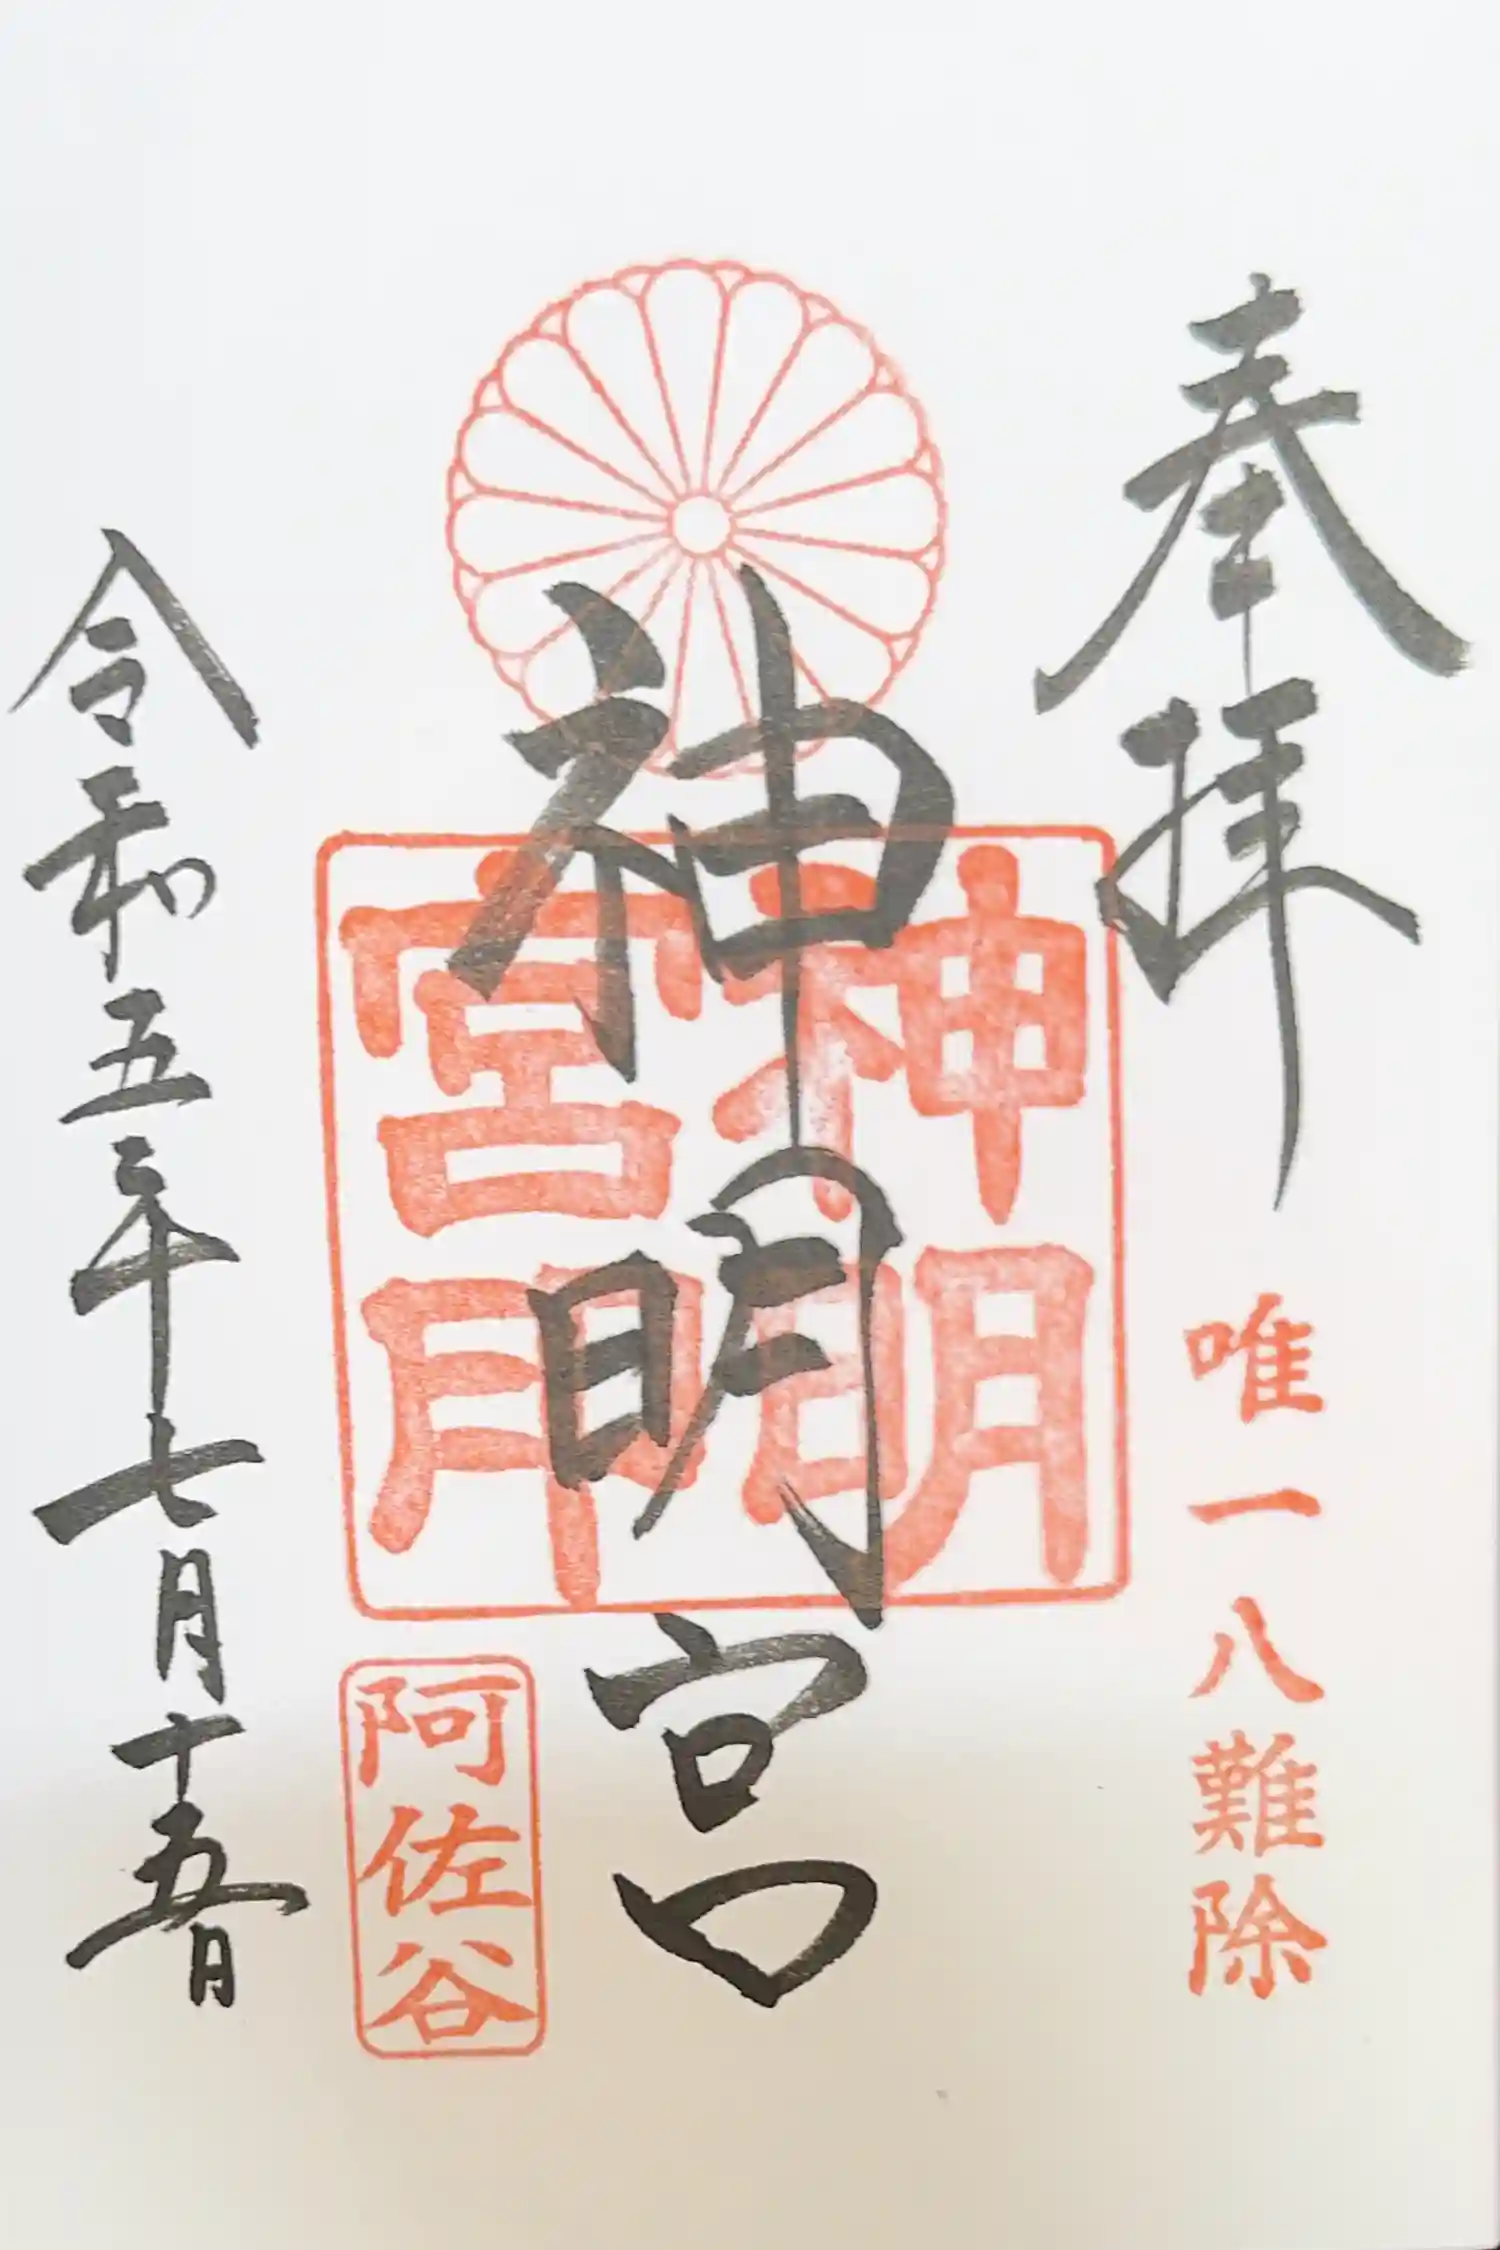 奉拝
唯一八難除
神明宮
神明
宮印
阿佐谷
令和五年七月十五日